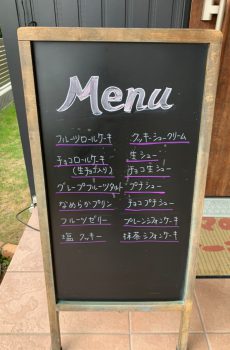 Menu
フルーツロールケーキ
チョコロールケーキ
(生チョコ入り)
グレープフルーツタルト
なめらかプリン
フルーツゼリー
塩 クッキー
クッキーシュークリーム
生シュー
チョコ生シュー
プチシュー
チョコプチシュー
プレーンシフォンケーキ
抹茶シフォンケーキ